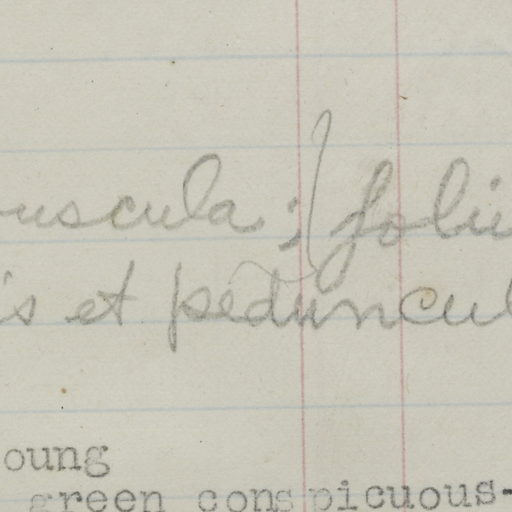 uscula; folii
is et peduncul
oung
green conspicuous-